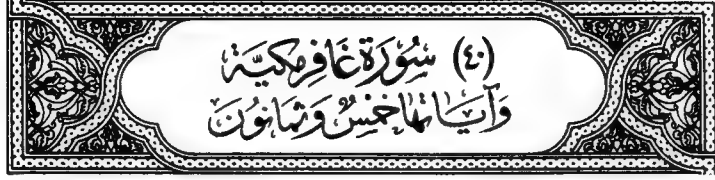 (٤٠) سُوْرَة غَافِر مكيَّة
وَآيَاتها خَمْسٌ وَثَمَانُونَ